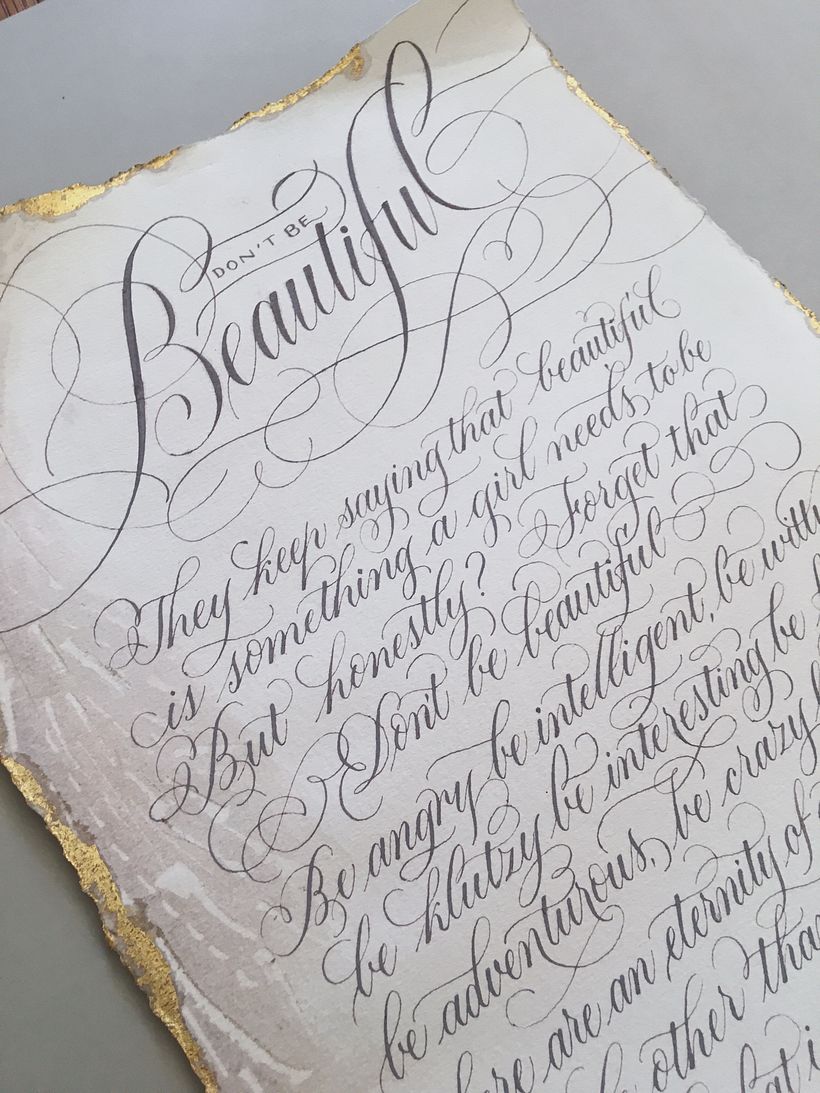 DON'T BE
Beautiful
They keep saying that beautiful
is something a girl needs to be
But honestly? Forget that
Don't be beautiful
Be angry be intelligent, be
be klutzy be interesting be
be adventurous, be crazy
are an eternity of
other